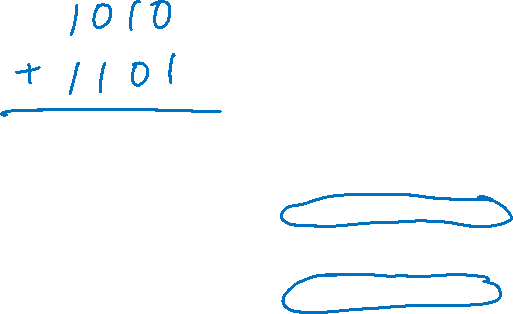 1010
+ 1101